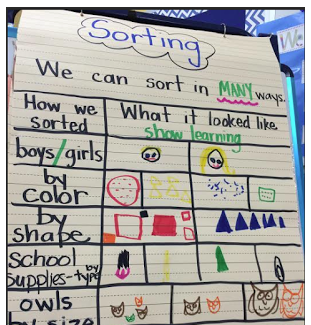 Sorting
We can sort in MANY ways.
How we sorted
What it looked like
show learning
boys/girls
by color
by shape
school supplies-by type
owls by size
We